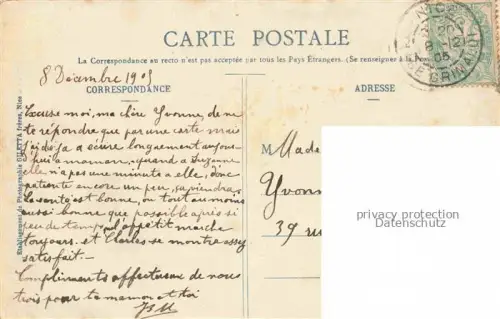 CARTE POSTALE
La Correspondance au recto n'est pas acceptée par tous les Pays Étrangers. (Se renseigner à la Poste
8 Décembre 1905
CORRESPONDANCE
ADRESSE
Excuse moi, ma chère Yvonne, de ne
te répondre que par une carte mais
j'ai déjà écrit longuement aujour-
d'hui à maman, quand à Suzanne
elle n'a pas une minute à elle, donc
patiente encore un peu, sa viendra.
La santé est bonne, ou tout au moins
aussi bonne que possible après si
peu de temps, l'appétit marche
toujours et Charles se montre assez
satisfait.-
Compliments affectueux de nous
trois pour ta maman et toi
M
Made
Yvonn
39 ru
privacy protection
Datenschutz
Etablissement de Photographie GILETTA frères, Nice